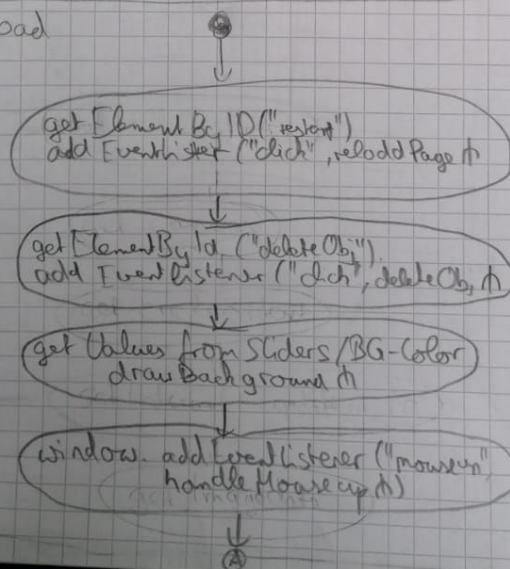 oad
get ElementByID("restart")
add EventListner ("click", reloadPage ⋔
getElementById ("deleteObj")
add EventListener ("click", deleteObj ⋔
get Values from Sliders/BG-Color
drawBackground ⋔
window. addEventListener ("mouseup"
handleMouseup ⋔)
A